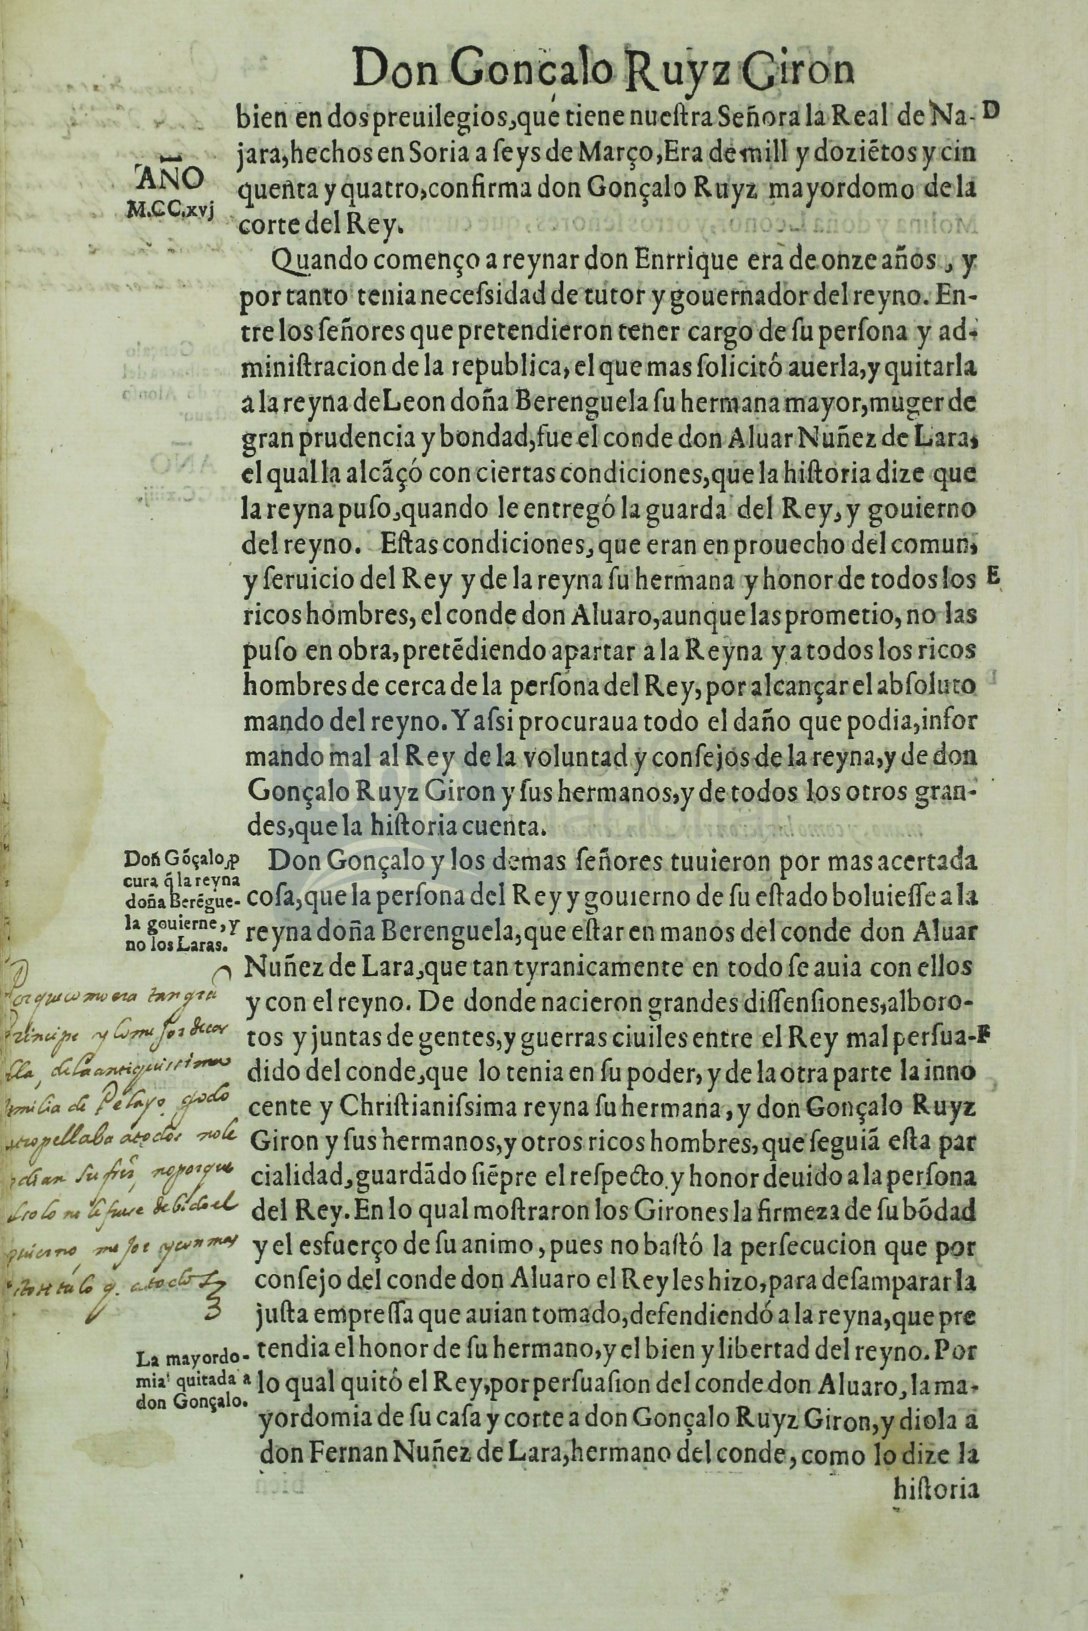 Don Gonçalo Ruyz Giron
bien en dos preuilegios, que tiene nueſtra Señora la Real de Na- D
jara, hechos en Soria a ſeys de Março, Era de mill y doziẽtos y cin
AÑO
M.CC.xvj
quenta y quatro, confirma don Gonçalo Ruyz mayordomo de la
corte del Rey.
Quando començo a reynar don Enrrique era de onze años, y
por tanto tenia neceſsidad de tutor y gouernador del reyno. En-
tre los ſeñores que pretendieron tener cargo de ſu perſona y ad-
miniſtracion de la republica, el que mas ſolicitó auerla, y quitarla
a la reyna de Leon doña Berenguela ſu hermana mayor, muger de
gran prudencia y bondad, fue el conde don Aluar Nuñez de Lara,
el qual la alcãçó con ciertas condiciones, que la hiſtoria dize que
la reyna puſo, quando le entregó la guarda del Rey, y gouierno
del reyno. Eſtas condiciones, que eran en prouecho del comun,
y ſeruicio del Rey y de la reyna ſu hermana y honor de todos los E
ricos hombres, el conde don Aluaro, aunque las prometio, no las
puſo en obra, pretẽdiendo apartar a la Reyna y a todos los ricos
hombres de cerca de la perſona del Rey, por alcançar el abſoluto
mando del reyno. Y aſsi procuraua todo el daño que podia, infor
mando mal al Rey de la voluntad y conſejos de la reyna, y de don
Gonçalo Ruyz Giron y ſus hermanos, y de todos los otros gran-
des, que la hiſtoria cuenta.
Don Gõçalo, ꝓ
cura q̃ la reyna
doña Berẽgue-
la gouierne, y
no los Laras.
Don Gonçalo y los demas ſeñores tuuieron por mas acertada
coſa, que la perſona del Rey y gouierno de ſu eſtado boluieſſe a la
reyna doña Berenguela, que eſtar en manos del conde don Aluar
Nuñez de Lara, que tan tyranicamente en todo ſe auia con ellos
y con el reyno. De donde nacieron grandes diſſenſiones, alboro-
tos y juntas de gentes, y guerras ciuiles entre el Rey mal perſua- F
dido del conde, que lo tenia en ſu poder, y de la otra parte la inno
cente y Chriſtianiſsima reyna ſu hermana, y don Gonçalo Ruyz
Giron y ſus hermanos, y otros ricos hombres, que ſeguiã eſta par
cialidad, guardãdo ſiẽpre el reſpecto y honor deuido a la perſona
del Rey. En lo qual moſtraron los Girones la firmeza de ſu bõdad
y el esfuerço de ſu animo, pues no baſtó la perſecucion que por
conſejo del conde don Aluaro el Rey les hizo, para deſamparar la
juſta empreſſa que auian tomado, defendiendó a la reyna, que pre
tendia el honor de ſu hermano, y el bien y libertad del reyno. Por
lo qual quitó el Rey, por perſuaſion del conde don Aluaro, la ma-
yordomia de ſu caſa y corte a don Gonçalo Ruyz Giron, y diola a
don Fernan Nuñez de Lara, hermano del conde, como lo dize la
hiſtoria
Porque como era tan gran
Principe y lo mejor de cas
de la antiquissima
familia de Pelayo godo
atropellaba a todos no le
podian sufrir no porque
no le fuese debido el
mejor y con mas
titulo q. a todos
La mayordo-
mia quitada a
don Gonçalo.